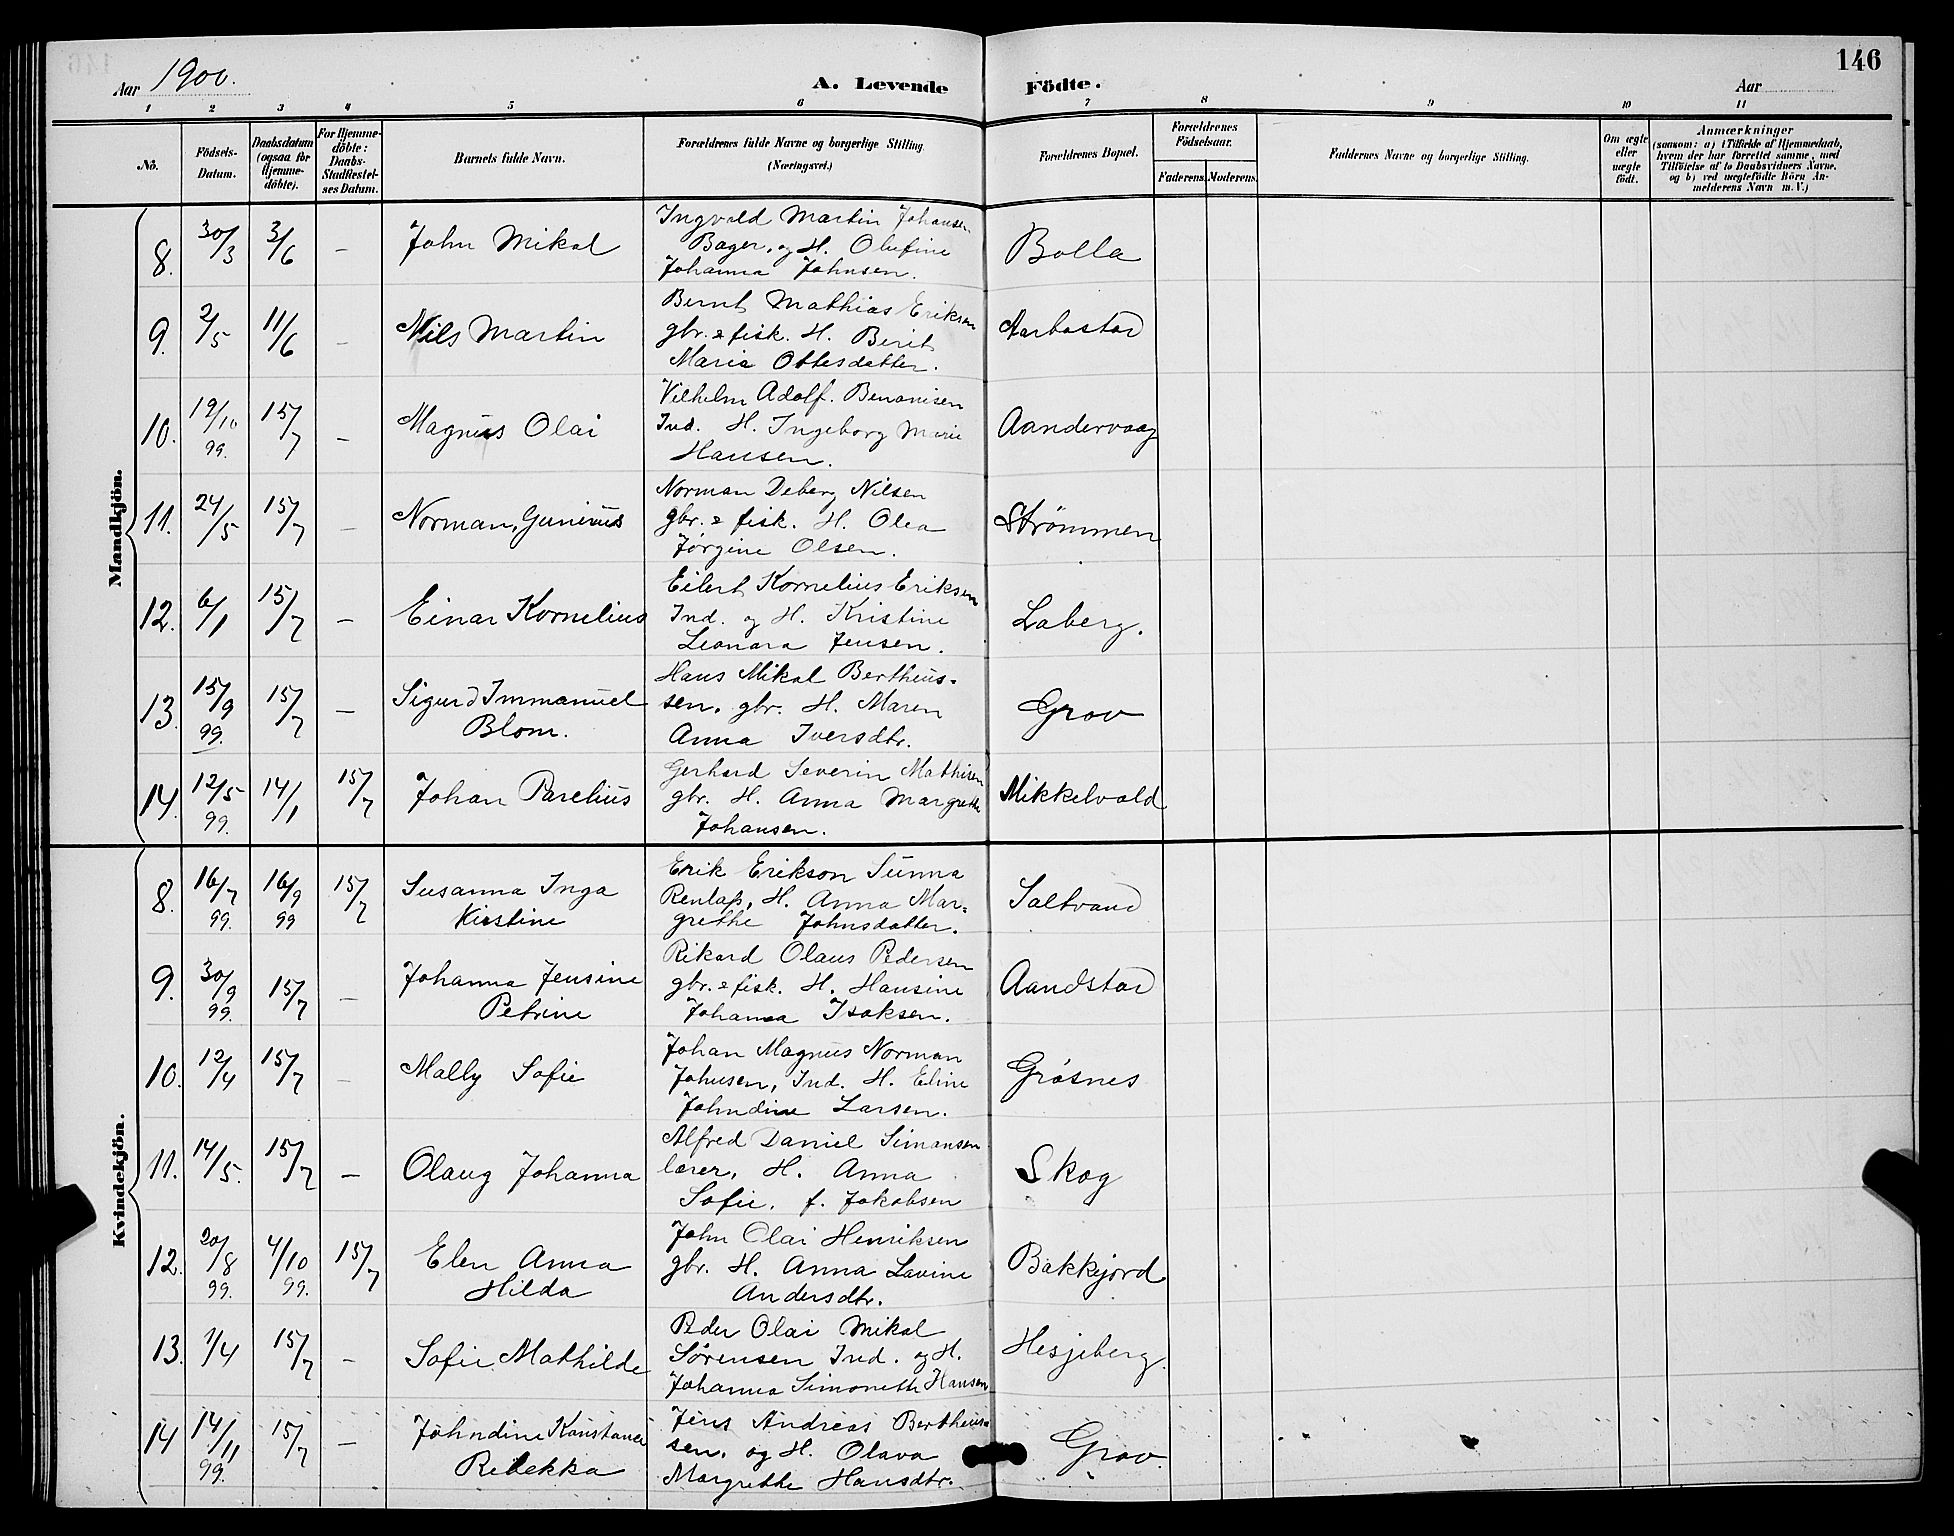 Aar 1900.
A. Levende Födte.
Aar
146
1 2 3 4 5 6 7 8 9 10 11
No.
Födsels-Datum.
Daabsdatum (ogsaa for Hjemme-döbte).
For Hjemme-döbte: Daabs-Stadfæstel-ses Datum.
Barnets fulde Navn.
Forældrenes fulde Navne og borgerlige Stilling (Næringsvei.)
Forældrenes Bopæl.
Forældrenes Födselsaar.
Faderens. Moderens.
Faddernes Navne og borgerlige Stilling.
Om ægte eller uægte født.
Anmærkninger
(saasom: a) i Tilfælde af Hjemmedaab, hvem der har forrettet samme, med Tilföielse af to Daabsvidners Navne, og b) ved uægtefödte Börn An-melderens Navn m. V.)
Mandkjön.
8. 30/3 3/6 – John Mikal
Ingvald Martin Johansen
Bager, og H. Olufine
Johanna Johnsen.
Bolla
9. 2/5 11/6 – Nils Martin
Bernt Mathias Eriksen
gbr. & fisk. H. Berit
Marie Ottesdatter.
Aarbostad
10. 19/10 99. 15/7 – Magnus Olai
Vilhelm Adolf. Benonisen
Ind. H. Ingeborg Marie
Hansen.
Aandervaag
11. 24/5 15/7 – Norman, Gunerius
Norman Deberg Nilsen
gbr. & fisk. H. Olea
Jørgine Olsen.
Strømmen
12. 6/1 15/7 – Einar Kornelius
Eilert Kornelius Eriksen
Ind. og H. Kristine
Leonara Jensen.
Laberg.
13. 15/9 99. 15/7 – Sigurd Immanuel
Blom.
Hans Mikal Bertheus-
sen. gbr. H. Maren
Anna Iversdtr.
Grov
14. 12/5 99. 14/1 15/7 Johan Parelius
Gerhard Severin Mathisen
gbr. H. Anna Margrethe
Johansen.
Mikkelvold
Kvindekjön.
8. 16/7 99. 16/9 99 15/7 Susanna Inga
Kirstine
Erik Erikson Sunna
Renlap, H. Anna Mar-
grethe Johnsdatter.
Saltvand
9. 30/9 99. 15/7 – Johanna Jensine
Petrine
Rikard Olaus Pedersen
gbr. & fisk. H. Hansine
Johanna Isaksen.
Aandstad
10. 12/4 15/7 – Mally Sofie
Johan Magnus Norman
Johnsen, Ind. H. Eline
Johndine Larsen.
Grøsnes
11. 14/5. 15/7 – Olaug Johanna
Alfred Daniel Simonsen
lærer, H. Anna
Sofie. f. Jakobsen
Skog
12. 20/8 99. 4/10 99. 15/7 Elen Anna
Hilda
John Olai Henriksen
gbr. H. Anna Lavine
Andersdtr.
Bakkejord
13. 1/4 15/7 – Sofie Mathilde
Peder Olai Mikal
Sørensen Ind. og H.
Johanna Simoneth Hansen
Hesjeberg.
14 14/11 99. 15/7 – Johndine Konstance
Rebekka
Jens Andreas Bertheus-
sen. og H. Olava
Margrethe Hansdtr.
Grov.